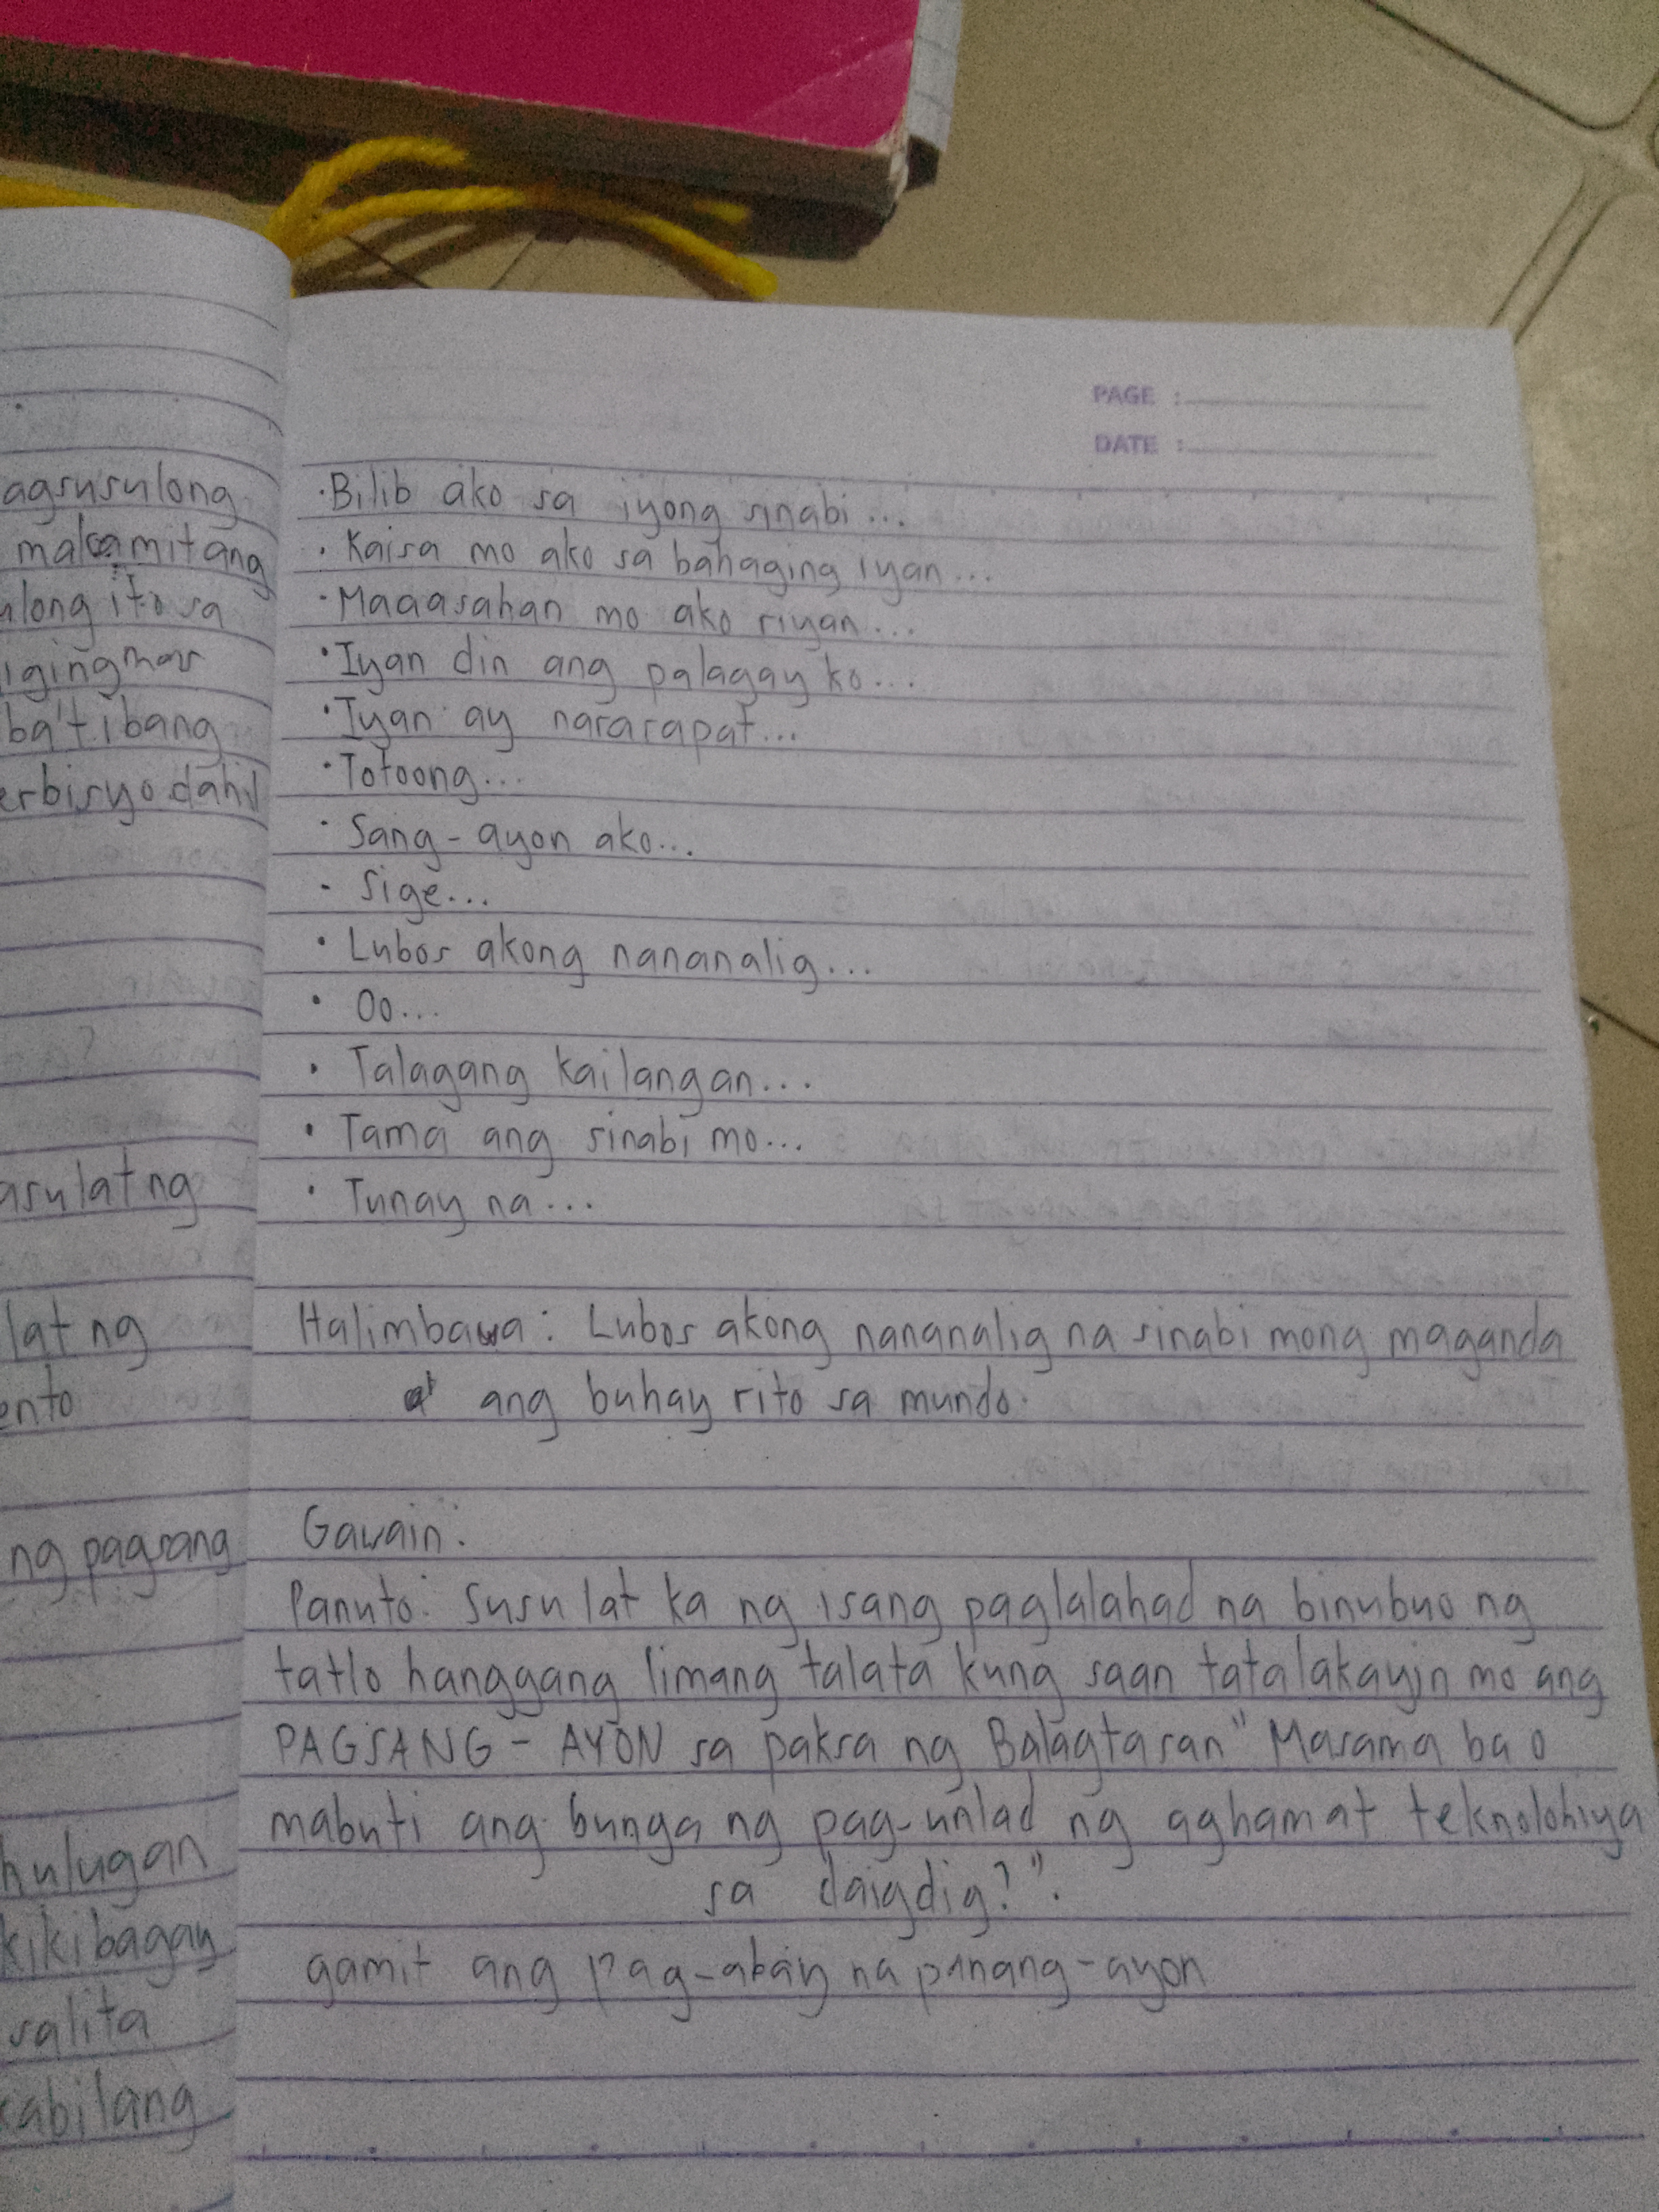 agsusulong
makamit ang
ulong ito sa
iging mas
ba't ibang
erbisyo dahil
asulat ng
lat ng
ento
ng pagsang
hulugan
kikibagay
salita
kabilang
PAGE :
DATE :
·Bilib ako sa iyong sinabi...
· Kaisa mo ako sa bahaging iyan...
·Maaasahan mo ako riyan...
·Iyan din ang palagay ko...
·Iyan ay nararapat...
·Totoong...
· Sang-ayon ako...
· Sige...
· Lubos akong nananalig...
· Oo...
· Talagang kailangan...
· Tama ang sinabi mo...
· Tunay na...
Halimbawa: Lubos akong nananalig na sinabi mong maganda
ang buhay rito sa mundo.
Gawain:
Panuto: Susulat ka ng isang paglalahad na binubuo ng
tatlo hanggang limang talata kung saan tatalakayin mo ang
PAGSANG-AYON sa paksa ng Balagtasan "Masama ba o
mabuti ang bunga ng pag-unlad ng agham at teknolohiya
sa daigdig?".
gamit ang pag-abay na panang-ayon